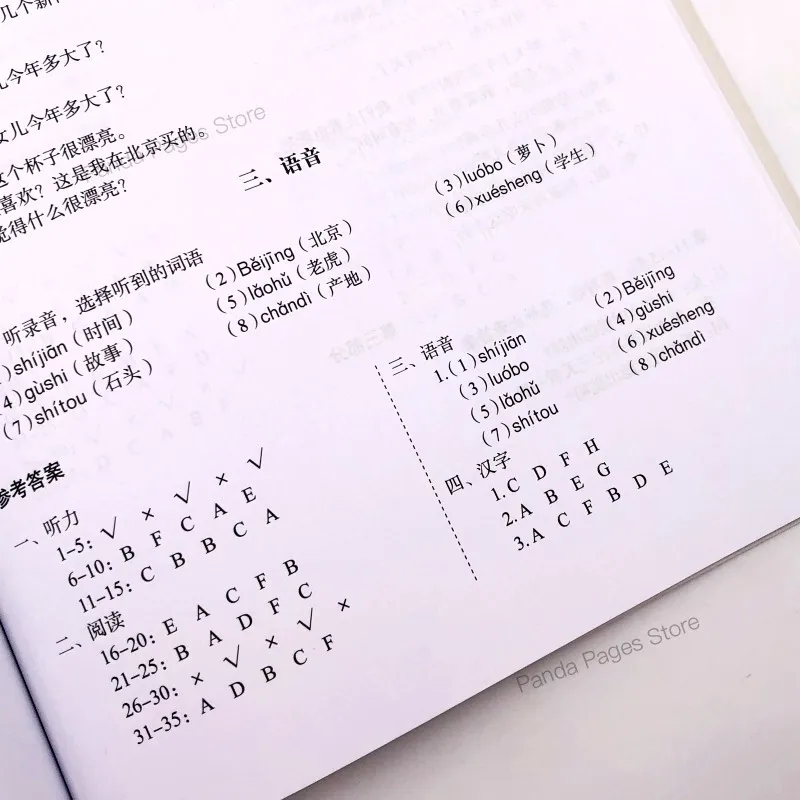 几个新
儿今年多大了？
女儿今年多大了？
这个杯子很漂亮。
喜欢？这是我在北京买的。
觉得什么很漂亮？
三、语音
听录音，选择听到的词语
)shíjiān（时间） （2）Běijīng（北京） （3）luóbo（萝卜）
4）gùshi（故事） （5）lǎohǔ（老虎） （6）xuésheng（学生）
（7）shítou（石头） （8）chǎndì（产地）
参考答案
一、听力
1–5：√ × √ × √
6–10：B F C A E
11–15：C B B C A
二、阅读
16–20：E A C F B
21–25：B A D F C
26–30：× √ × √ ×
31–35：A D B C F
三、语音
1.（1）shíjiān （2）Běijīng
（3）luóbo （4）gùshi
（5）lǎohǔ （6）xuésheng
（7）shítou （8）chǎndì
四、汉字
1.C D F H
2.A B E G
3.A C F B D E
Panda Pages Store
Panda Pages Store